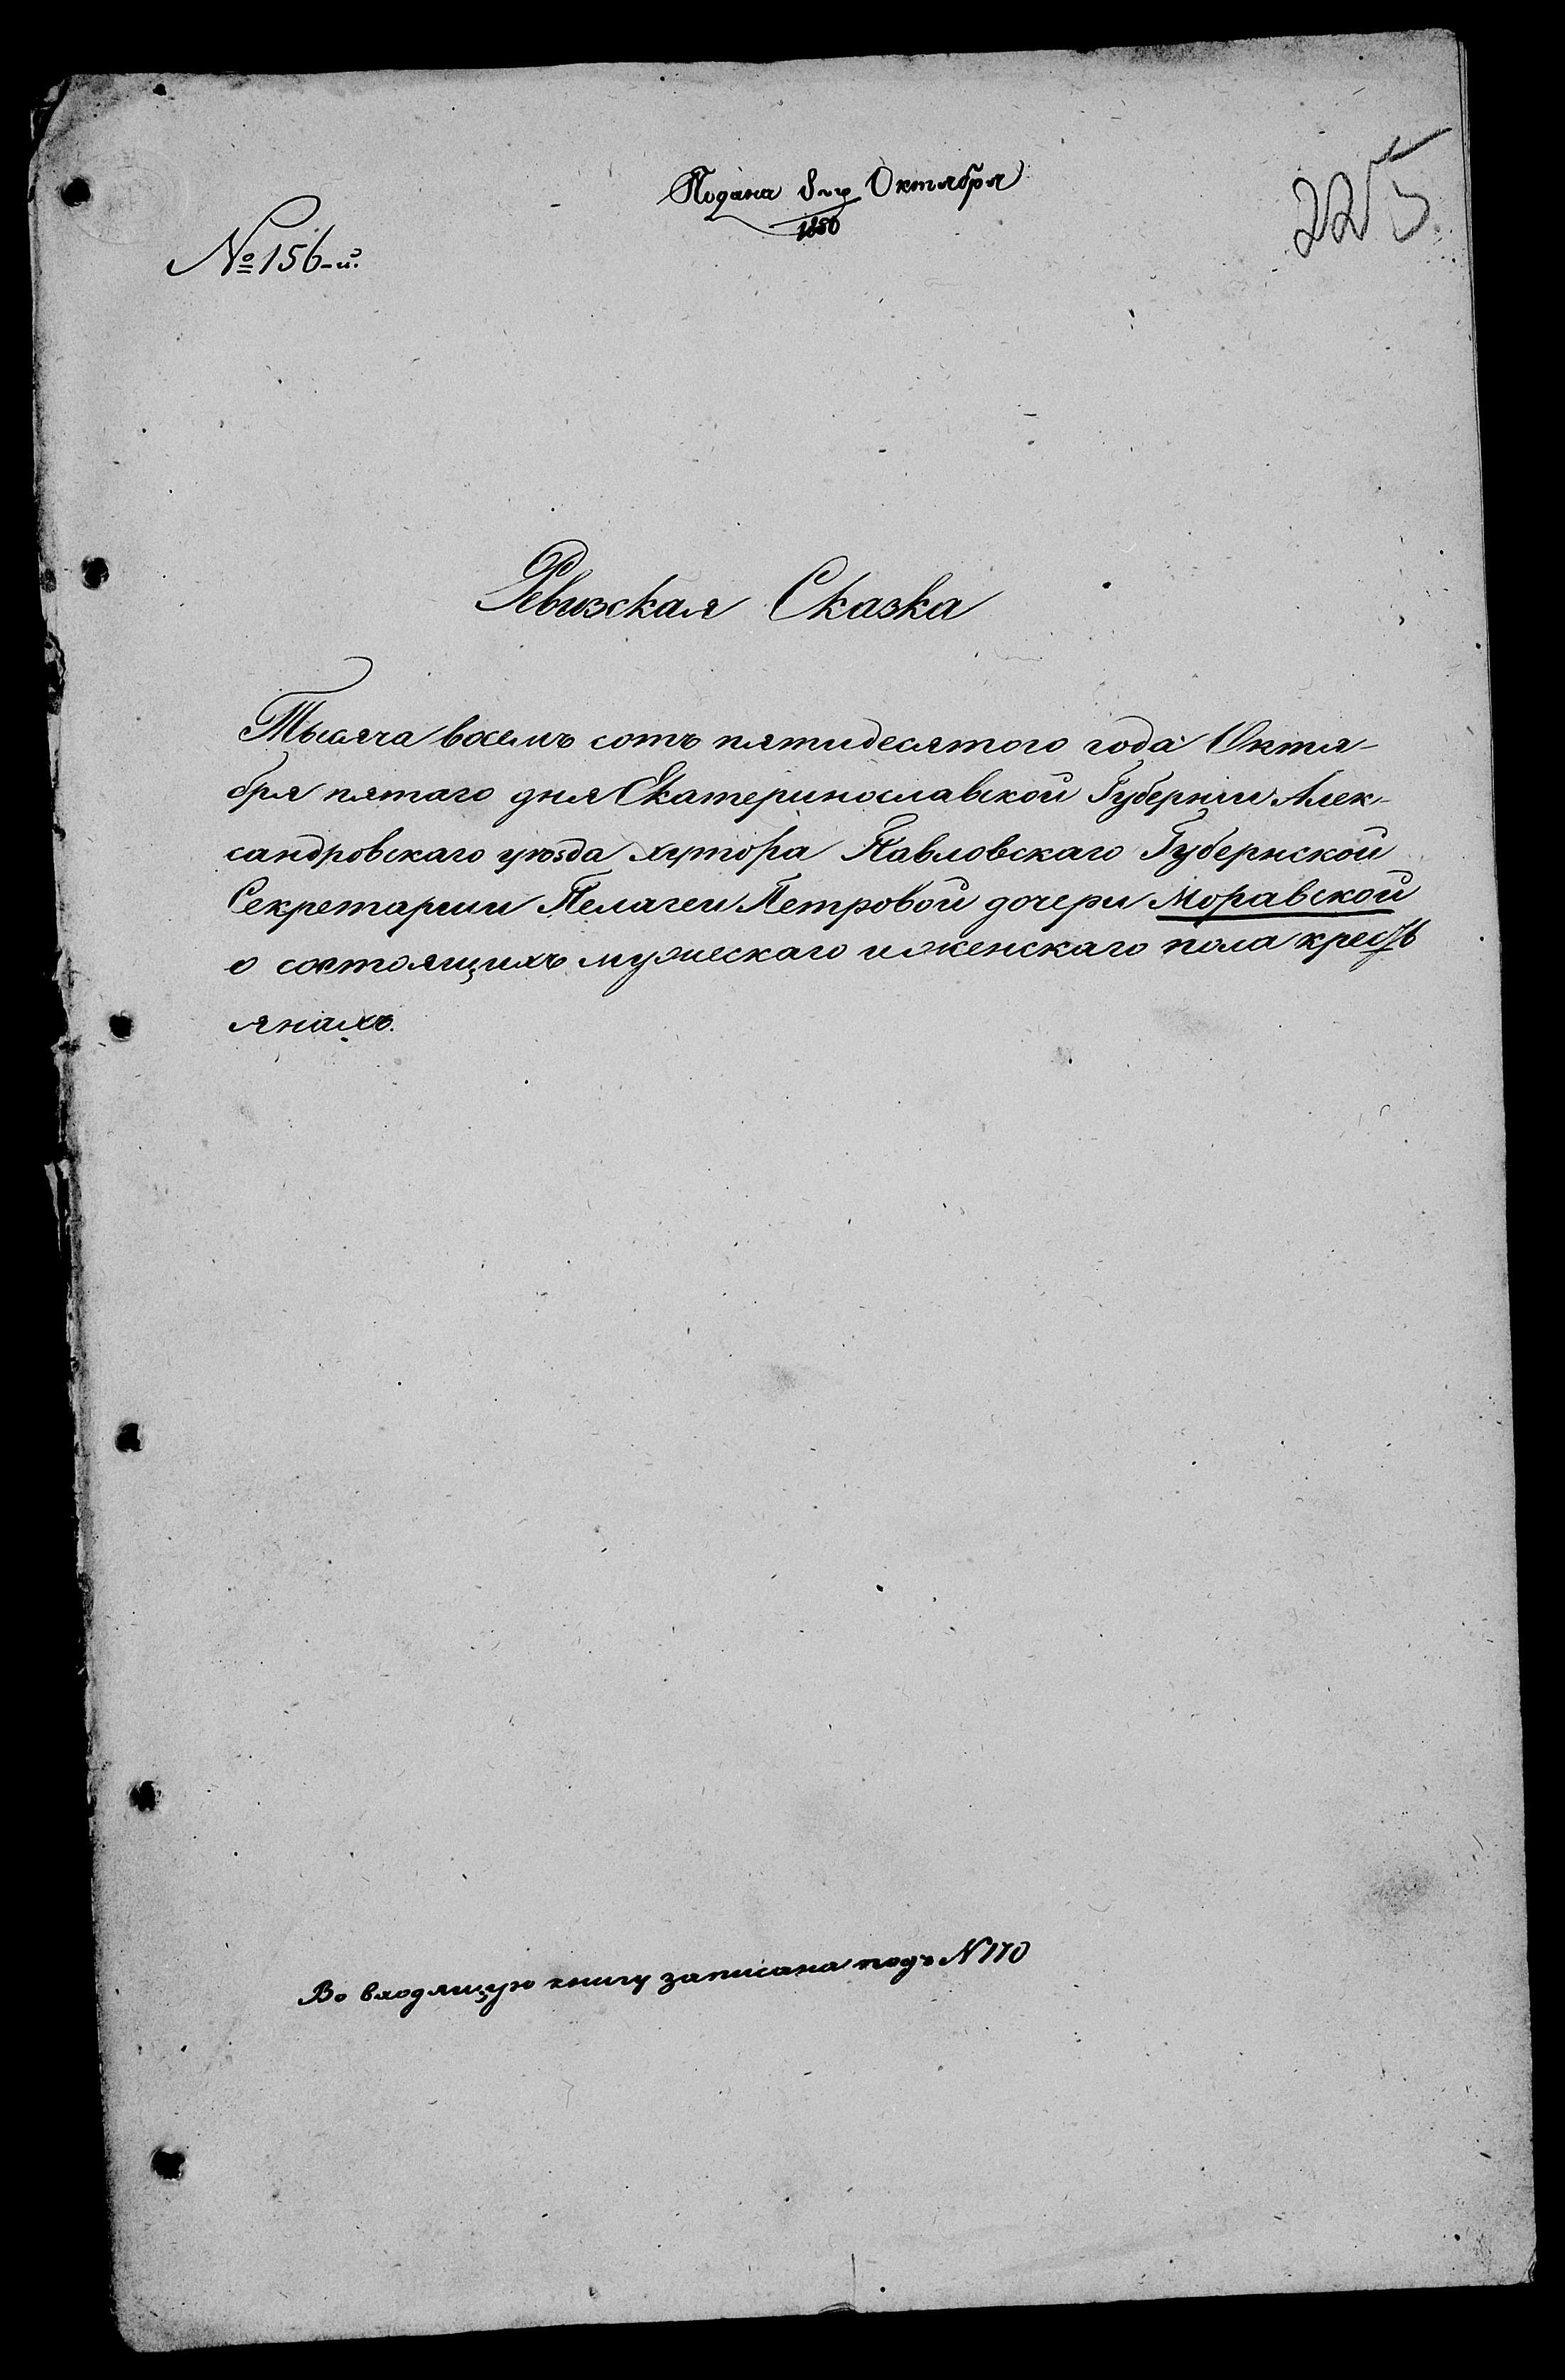 Подана 8-го Октября
1850
225
№ 156-й.
Ревизская Сказка
Тысяча восемъ сотъ пятидесятого года Октя-
бря пятаго дня Екатеринославской Губерніи Алек-
сандровскаго уѣзда хутора Павловскаго Губернской
Секретарши Пелагеи Петровой дочери Моравской
о состоящихъ мужескаго и женскаго пола кресть
янахъ.
Во входящую книгу записана подъ N 170